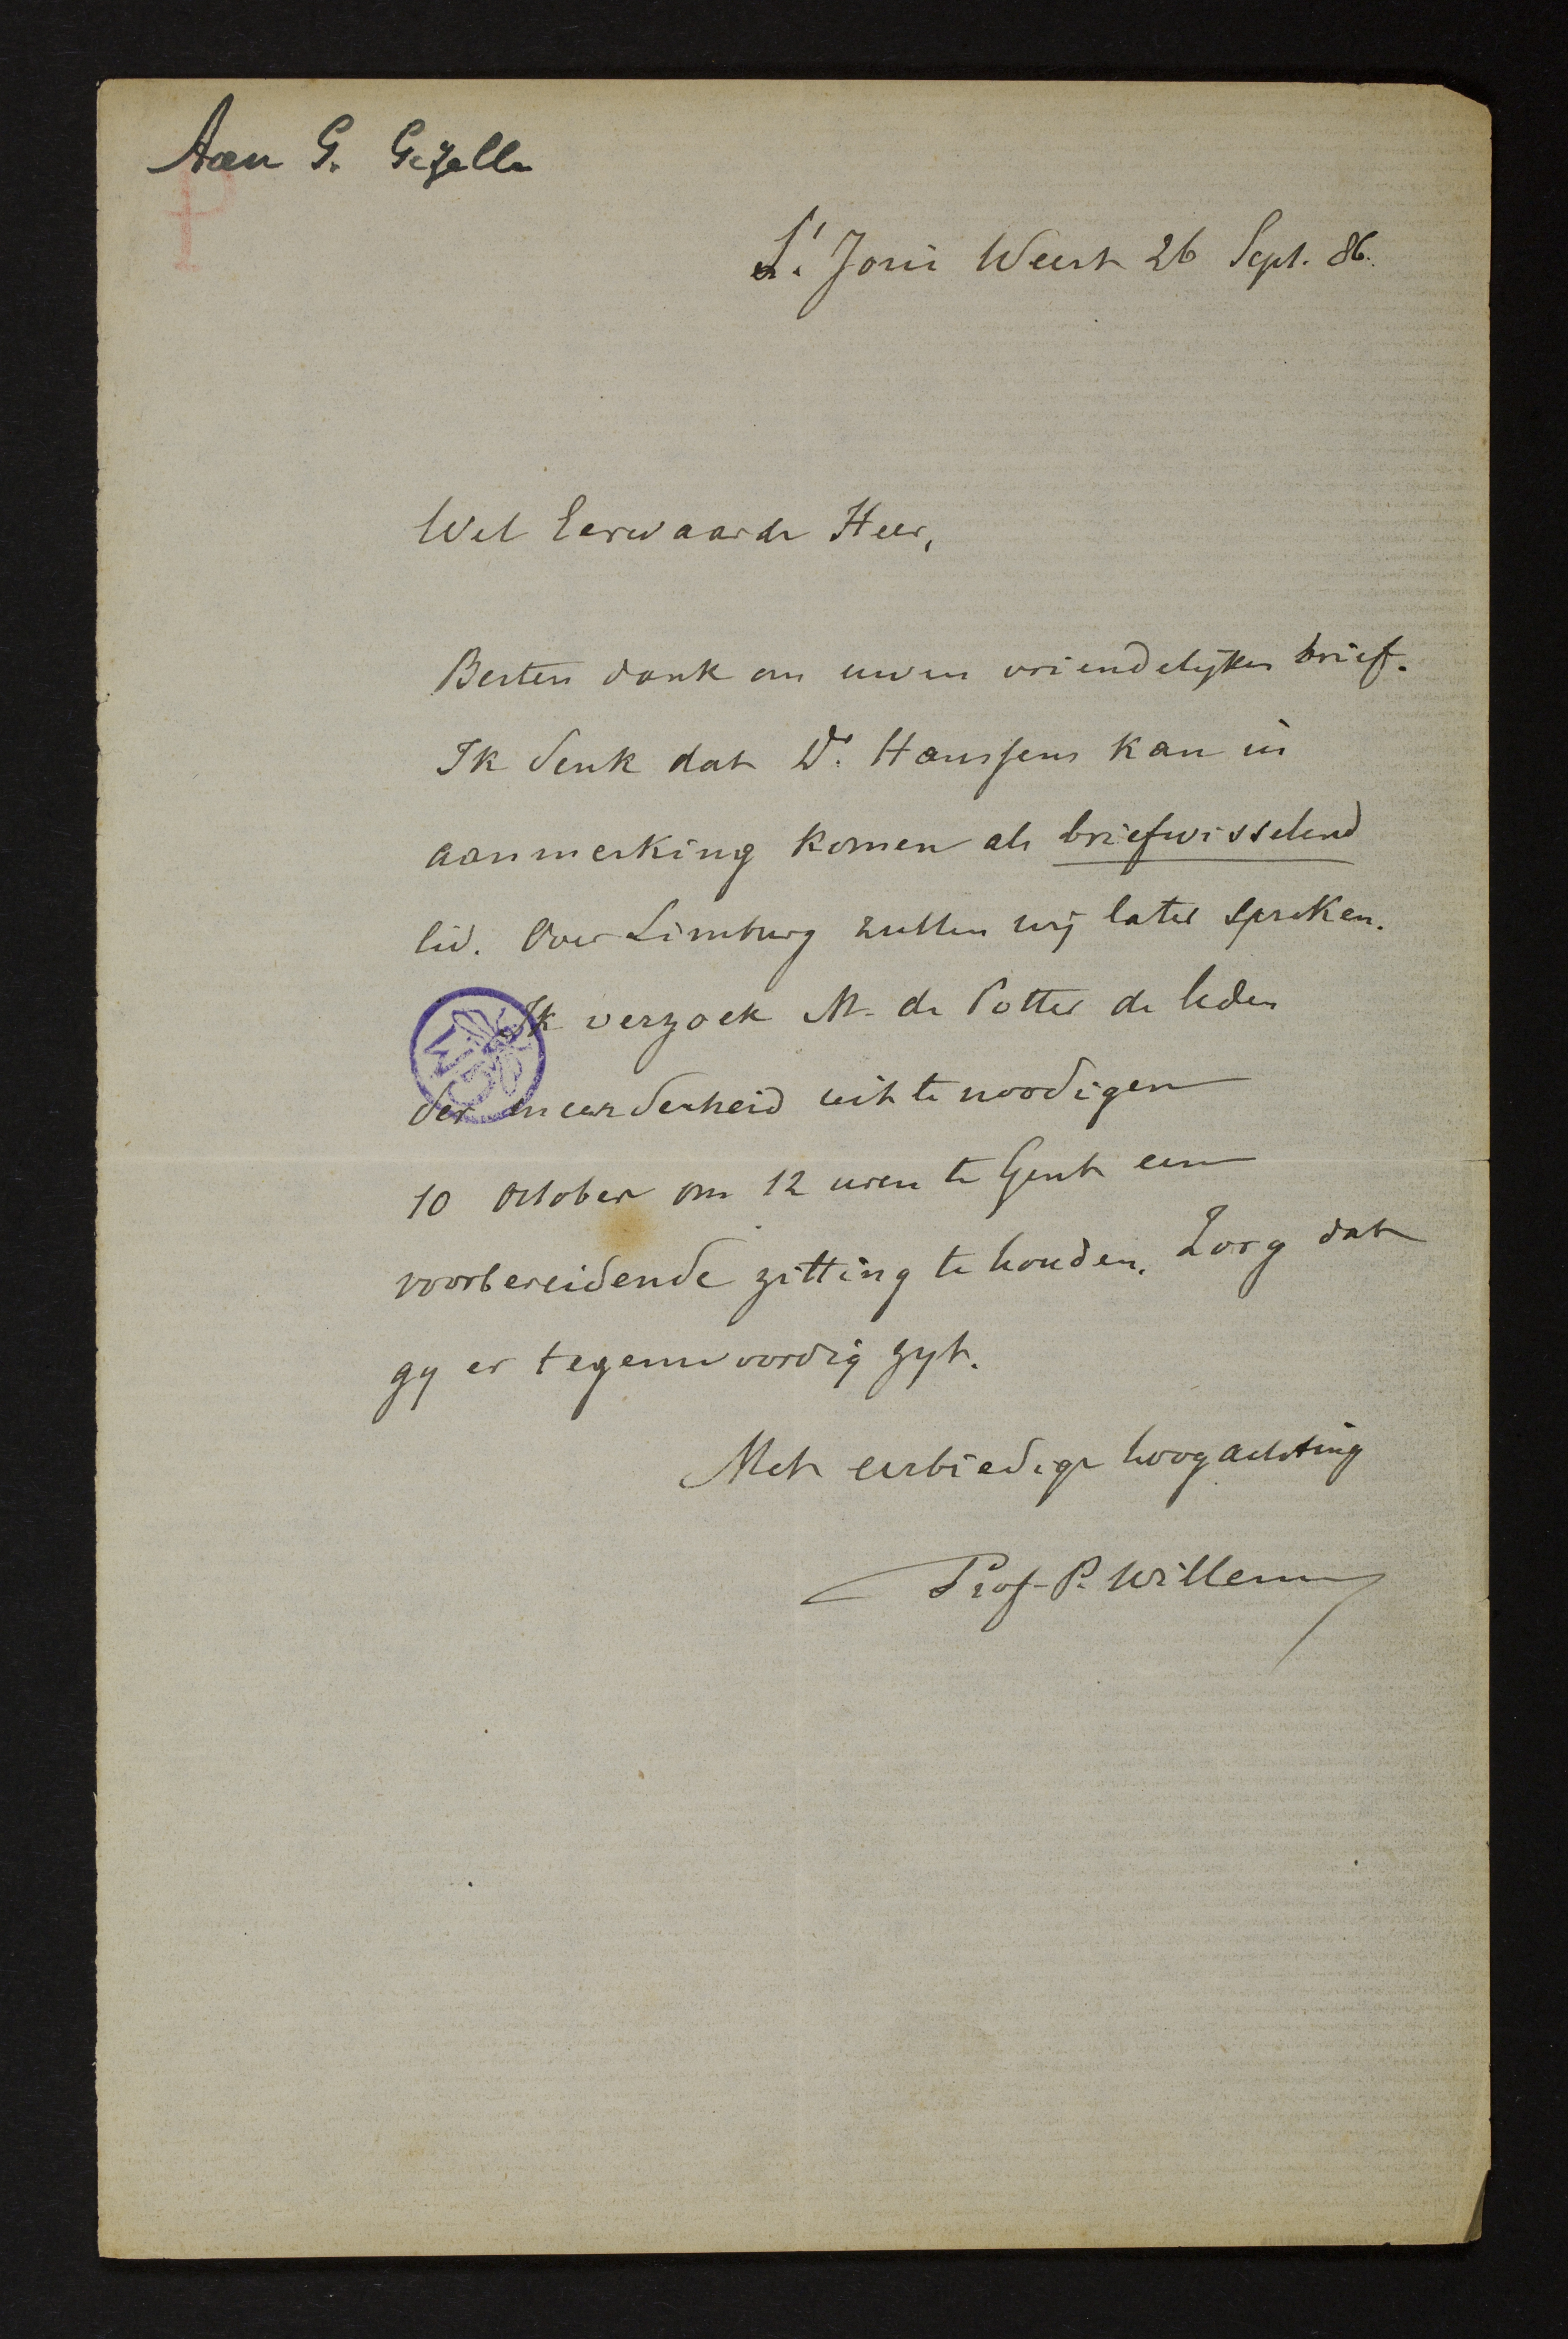 Aan G. Gezelle
P
St. Joris Weert 26 Sept. 86.
Wel Eerwaarde Heer,
Besten dank om uwen vriendelijken brief.
Ik denk dat Dr. Hanssens kan in
aanmerking komen als briefwisselend
lid. Over Limburg zullen wij later spreken.
Ik verzoek M. de Potter de leden
der meerderheid uit te noodigen
10 october om 12 uren te Gent een
voorbereidende zitting te houden. Zorg dat
gy er tegenwoordig zyt.
Met eerbiedige hoogachting
Prof. P. Willems